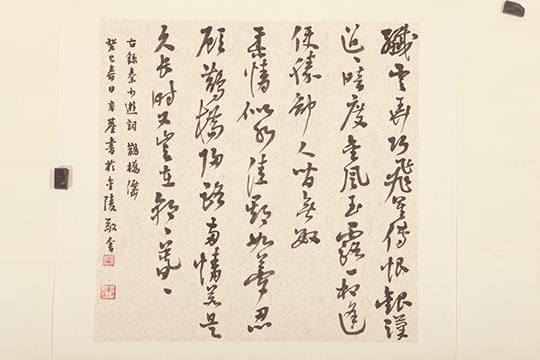 纖雲弄巧飛星傳恨銀漢
迢〻暗度金風玉露一相逢
便勝卻人間無數
柔情似水佳期如夢忍
顧鵲橋歸路兩情若是
久長時又豈在朝〻暮〻
右錄秦少遊詞鵲橋僊
癸巳春日書於金陵